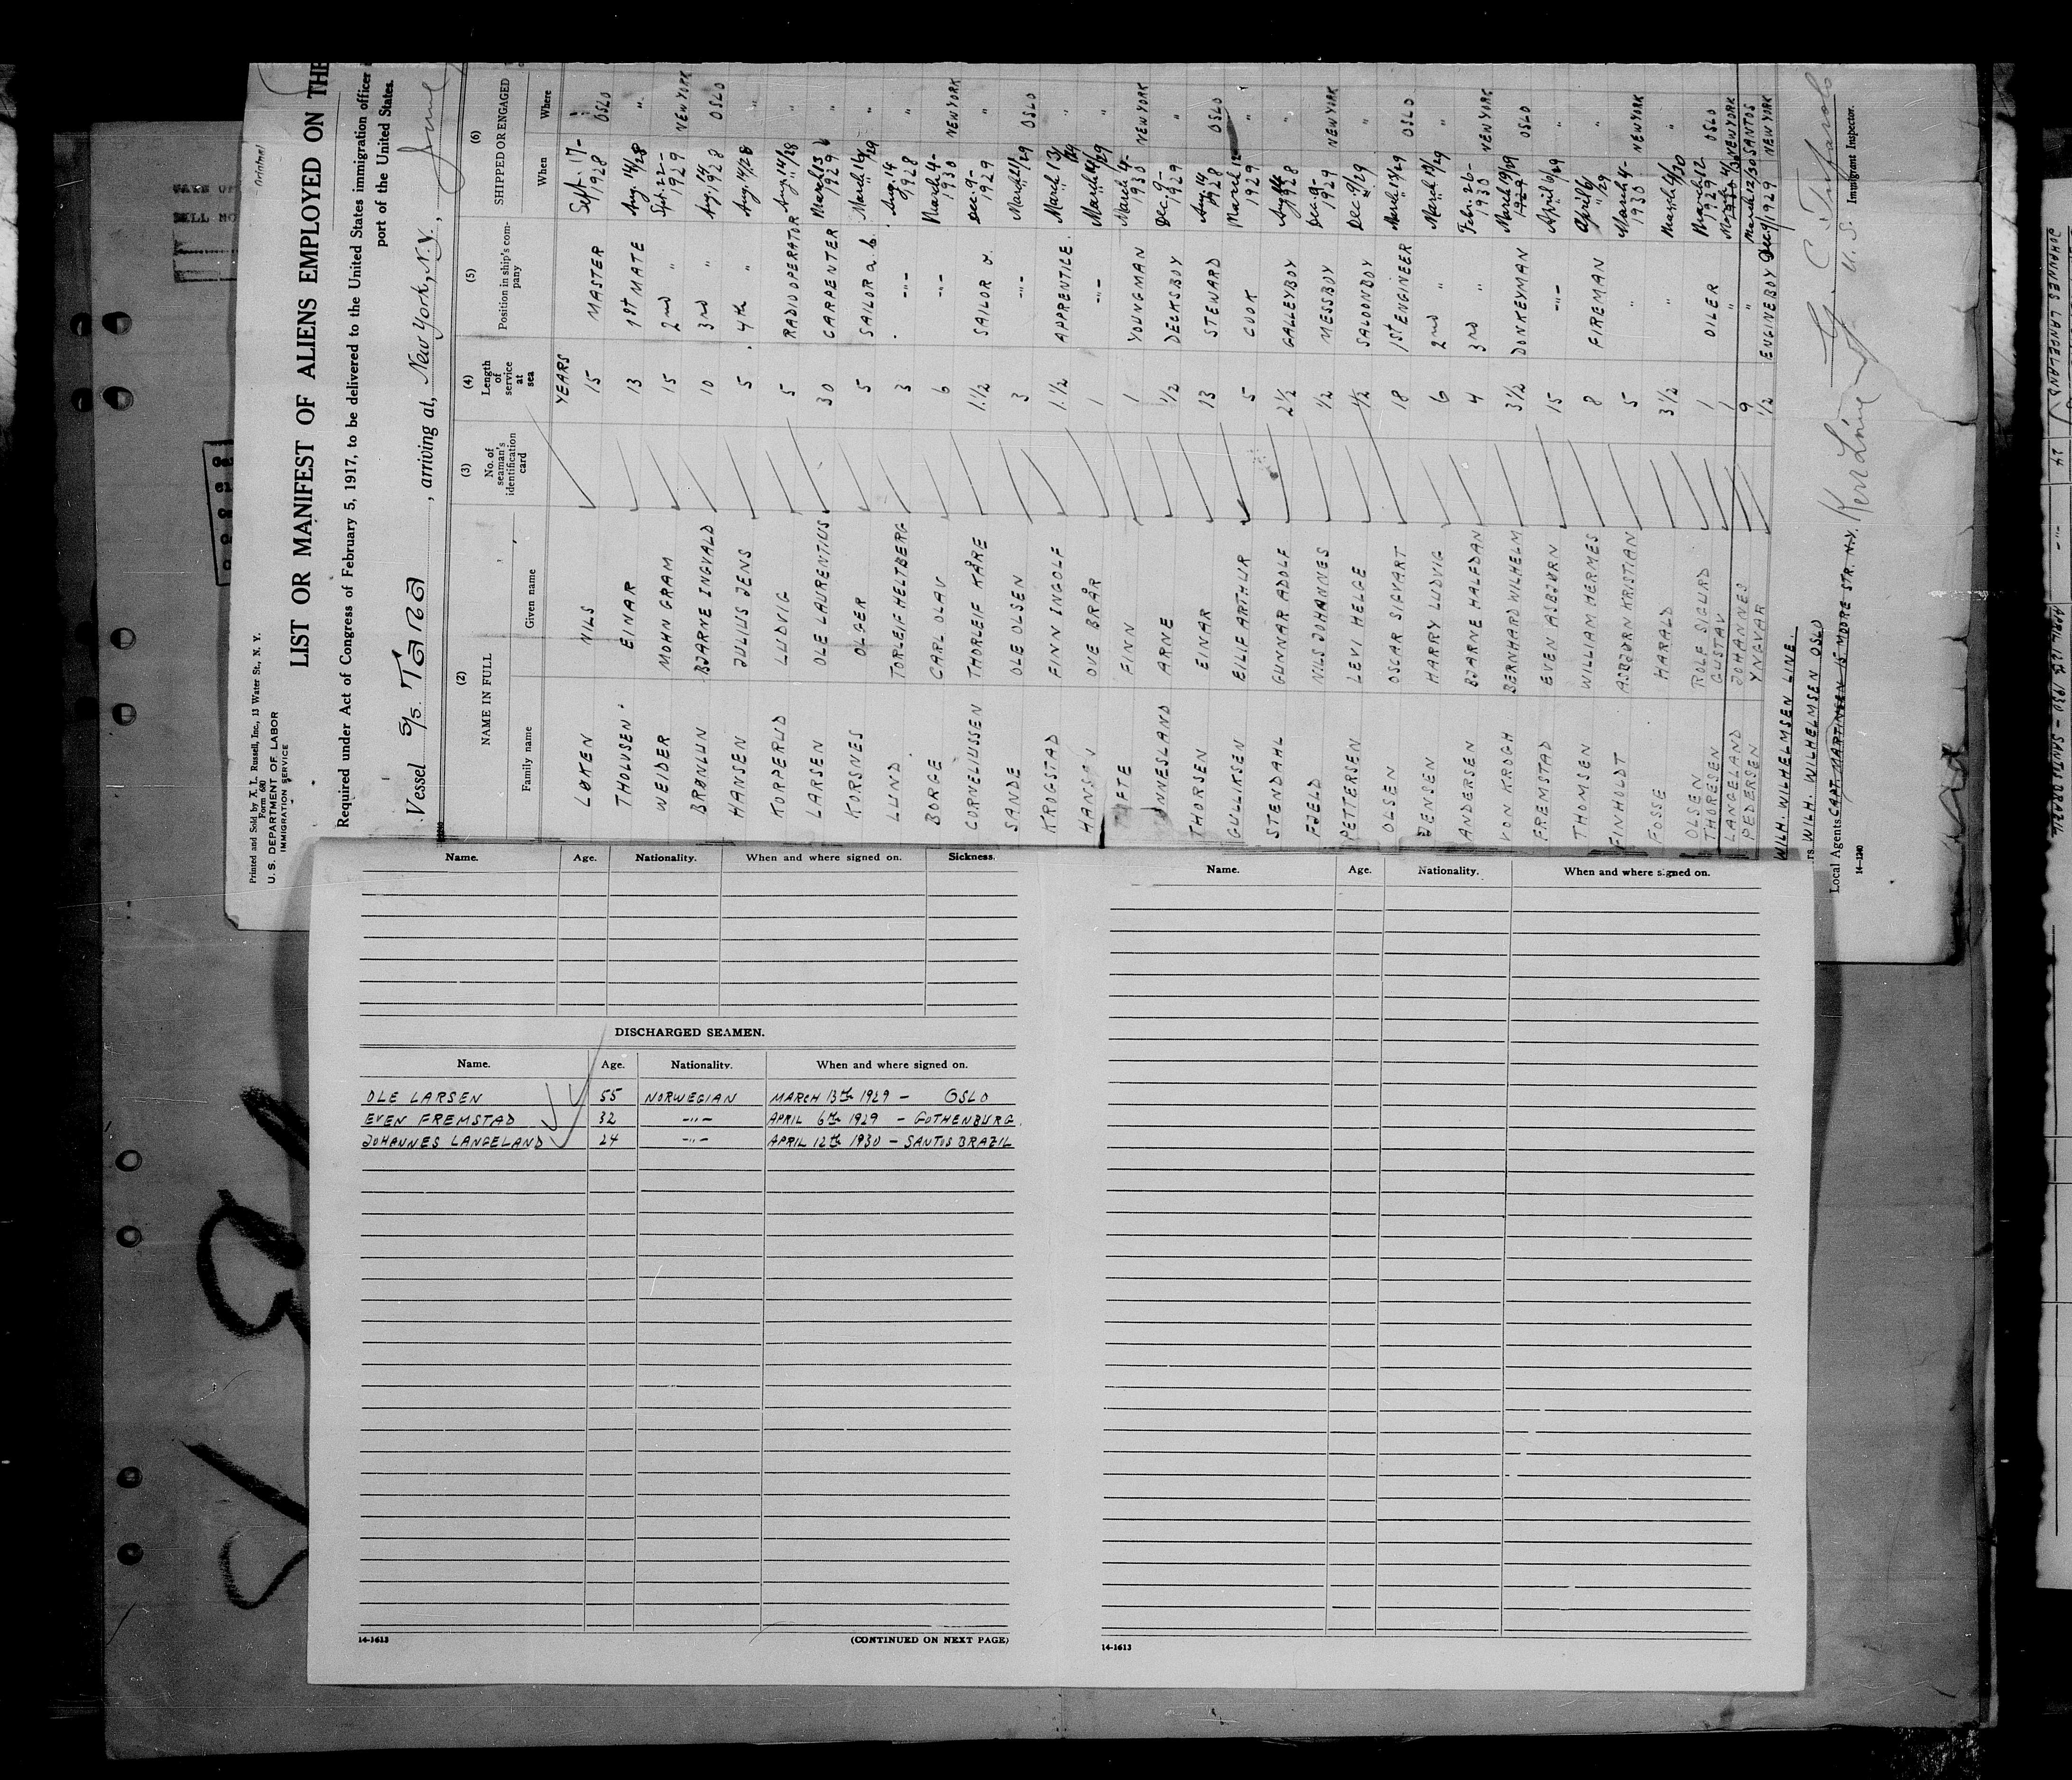 Printed and Sold by A. L. Russell, Inc., 13 Water St., N. Y.
Form 680
U. S. DEPARTMENT OF LABOR
IMMIGRATION SERVICE
LIST OR MANIFEST OF ALIENS EMPLOYED ON THE
Required under Act of Congress of February 5, 1917, to be delivered to the United States immigration officer
port of the United States.
Vessel S/S. TARA, arriving at, New York, N.Y., June
(2) (3) (4) (5) (6)
NAME IN FULL No. of seaman's identification card Length of service at sea Position in ship's company SHIPPED OR ENGAGED
Family name Given name When Where
YEARS
LØKEN NILS 15 MASTER Sept. 17- 1928 OSLO
THOLVSEN EINAR 13 1st MATE Aug. 14/28 "
WEIDER MOHN GRAM 15 2nd " Sept. 22- 1929 NEW YORK
BRØNLUN BJARNE INGVALD 10 3rd " Aug. 14 1928 OSLO
HANSEN JULIUS JENS 5 4th " Aug. 14/28 "
KORPERUD LUDVIG 5 RADIO OPERATOR Aug 14/28 "
LARSEN OLE LAURENTIUS 30 CARPENTER March 13 1929 "
KORSNES OLGER 5 SAILOR a. b. March 14/29 "
LUND TORLEIF HELTBERG 3 -"- Aug. 14 1928 "
BORGE CARL OLAV 6 -"- March 4- 1930 NEW YORK
CORNELIUSSEN THORLEIF KÅRE 1 1/2 SAILOR o. Dec. 9- 1929 "
SANDE OLE OLSEN 3 -"- March 11/29 OSLO
KROGSTAD FINN INGOLF 1 1/2 APPRENTICE March 13/29 "
HANSEN OVE BRÅR 1 -"- March 14/29 "
TVETE FINN 1 YOUNGMAN March 4- 1930 NEW YORK
ØNNESLAND ARNE 1/2 DECKSBOY Dec. 9- 1929 "
THORSEN EINAR 13 STEWARD Aug. 14 1928 OSLO
GULLIKSEN EILIF ARTHUR 5 COOK March 12 1929 "
STENDAHL GUNNAR ADOLF 2 1/2 GALLEYBOY Aug 14 1928 "
FJELD NILS JOHANNES 1/2 MESSBOY Dec. 9- 1929 NEW YORK
PETTERSEN LEVI HELGE 1/2 SALONBOY Dec. 9/29 "
OLSEN OSCAR SIGVART 18 1st ENGINEER March 13/29 OSLO
JENSEN HARRY LUDVIG 6 2nd " March 13/29 "
ANDERSEN BJARNE HALFDAN 4 3rd " Febr. 26- 1930 NEW YORK
VON KROGH BERNHARD WILHELM 3 1/2 DONKEYMAN March 19/29 OSLO
FREMSTAD EVEN ASBJØRN 15 -"- April 6/29 "
THOMSEN WILLIAM HERMES 8 FIREMAN April 6/29 "
FINHOLDT ASBJØRN KRISTIAN 5 " March 4- 1930 NEW YORK
FOSSE HARALD 3 1/2 " March 4/30 "
OLSEN ROLF SIGURD 1 OILER March 12 1929 OSLO
THORESEN GUSTAV 1 " NEW YORK
LANGELAND JOHANNES 9 " March 12/30 SANTOS
PEDERSEN YNGVAR 1/2 ENGINEBOY Dec. 9/1929 NEW YORK
WILH. WILHELMSEN LINE.
rs WILH. WILHELMSEN OSLO
Local Agents CAPT MARTINSEN 15 MOORE STR. N.Y. Kerr Line
U. S. Immigrant Inspector.
14—1240
Name. Age. Nationality. When and where signed on. Sickness.
DISCHARGED SEAMEN.
Name. Age. Nationality. When and where signed on.
OLE LARSEN 55 NORWEGIAN MARCH 13th 1929 - OSLO
EVEN FREMSTAD 32 -"- APRIL 6th 1929 - GOTHENBURG.
JOHANNES LANGELAND 24 -"- APRIL 12th 1930 - SANTOS BRAZIL
14-1613
(CONTINUED ON NEXT PAGE)
Name. Age. Nationality. When and where signed on.
14-1613
JOHANNES LANGELAND 24 -"- APRIL 12th 1930 - SANTOS BRAZIL